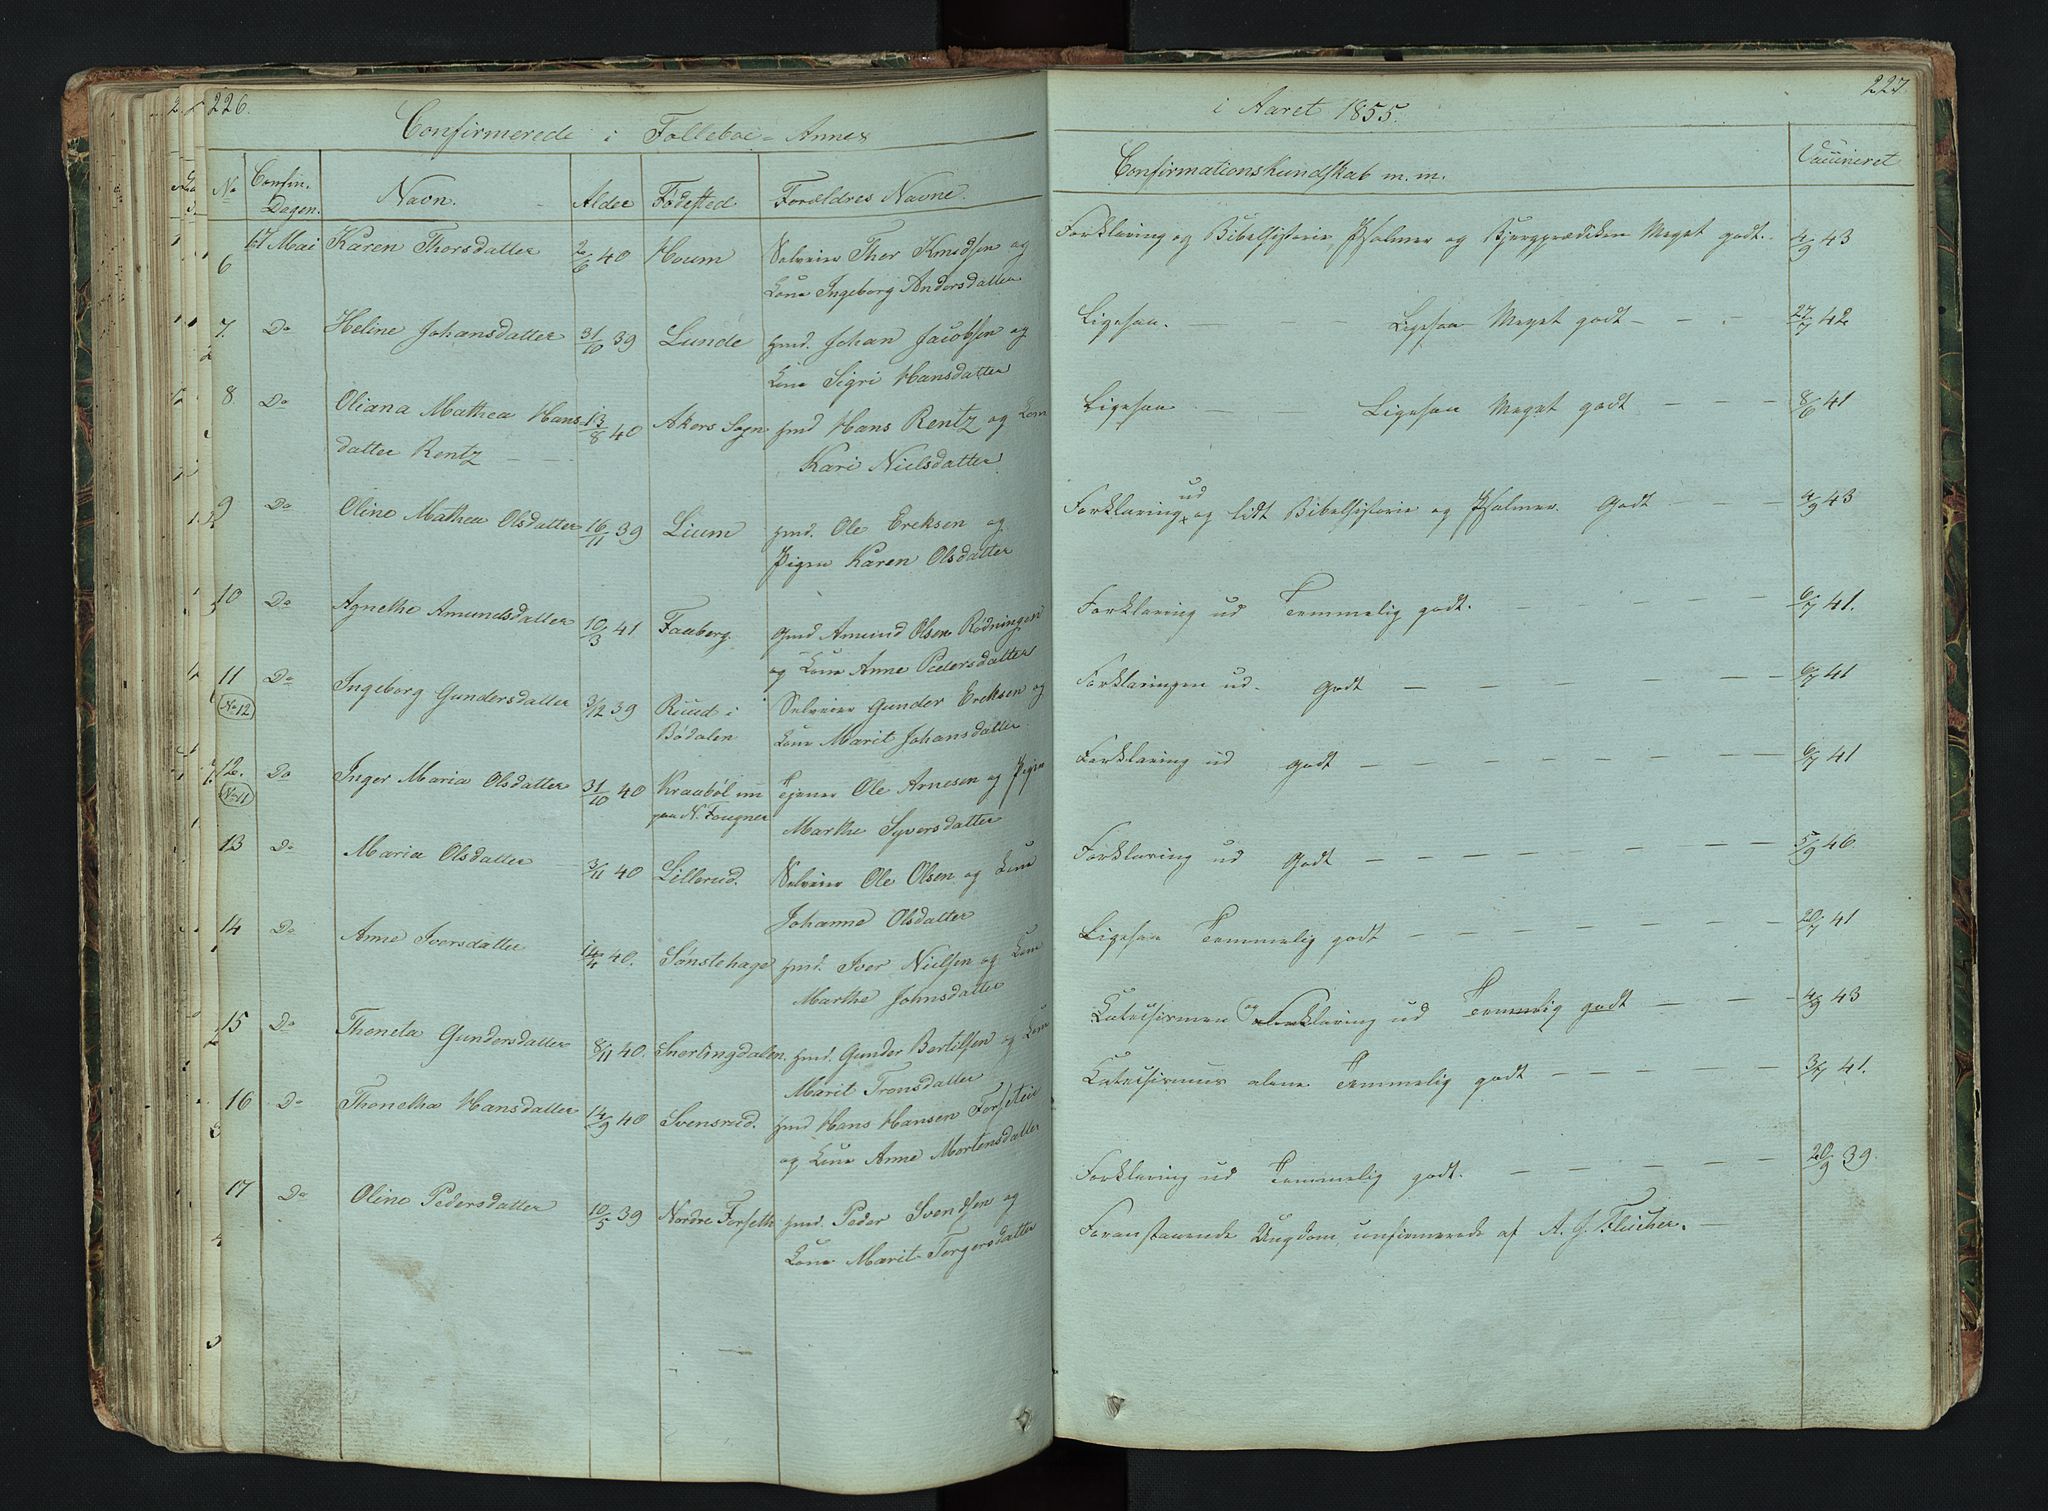 226.
Confirmerede i Folleboe-Annex
No Confir. Dagen. Navn. Alder Födested Forældres Navne.
6 17 Mai Karen Thorsdatter 2/6 40 Houm Selveier Thor Knudsen og
Kone Ingeborg Andersdatter
7. Do Heline Johansdatter 31/10 39 Lunde Hmd. Johan Jacobsen og
Kone Sigri Hansdatter
8. Do Oliana Mathea Hans- 13/8 40 Akers Sogn Hmd Hans Rentz og Kone
datter Rentz Kari Nielsdatter
9 Do Oline Mathea Olsdatter 16/11 39 Lium Hmd. Ole Ereksen og
Pigen Karen Olsdatter
10 Do Agnethe Amundsdatter 10/3 41 Faaberg. Gmd Amund Olsen Rødningen
og Kone Anne Pedersdatter
11 Do Ingeborg Gundersdatter 3/12 39 Ruud i Selveier Gunder Ereksen og
No 12 Bödalen Kone Marit Johansdatter
12. Do Inger Maria Olsdatter 31/10 40 Kraaböl nu Tjener Ole Arnesen og Pigen
No 11 paa N. Fougner Marthe Syversdatter
13 Do Maria Olsdatter 3/11 40 Lillerud. Selveier Ole Olsen og Kone
Johanne Olsdatter
14 Do Anne Iversdatter 14/4 40. Sönstehage Hmd. Iver Nielsen og Kone
Marthe Johnsdatter
15 Do Thoneta Gundersdatter 8/11 40. Snerlingdalen. Hmd. Gunder Bertilsen og Kone
Marit Tronsdatter
16 Do Thonetha Hansdatter 14/9 40 Svensrud. Hmd Hans Hansen Forseteie
og Kone Anne Mortensdatter
17 Do Oline Pedersdatter 10/5 39 Nordre Forseth Hmd. Peder Svendsen og
Kone Marit Torgersdatter
i Aaret 1855.
227.
Confirmationskundskab m.m. Vaccineret
Forklaring og Bibelhistorie Psalmer og Bjergprædiken Meget godt. 4/9 43
Ligesaa. Ligesaa Meget godt 27/7 42
Ligesaa Ligesaa Meget godt 8/6 41
Forklaring ud og lidt Bibelhistorie og Psalmer. Godt 4/9 43
Forklaring ud Temmelig godt. 6/7 41.
Forklaringen ud. Godt 6/7 41
Forklaring ud Godt 6/7 41
Forklaring ud Godt 5/9 46.
Ligesaa Temmelig godt 20/7 41
Katecismen og Forklaring ud Temmelig godt 4/9 43
Katecismus alene Temmelig godt 3/7 41.
Forklaring ud Temmelig godt. 20/9 39.
Foranstaaende Ungdom confirmerede af A. G. Fleischer.